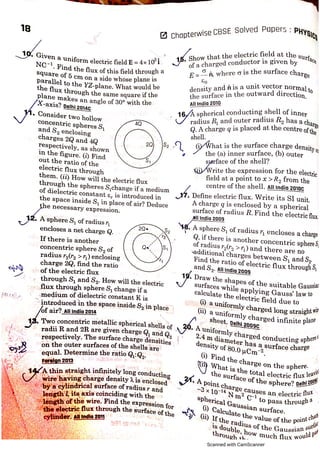 18
Chapterwise CBSE Solved Papers : PHYSICS
10. Given a uniform electric field E = 4×10³ î
NC⁻¹. Find the flux of this field through a
square of 5 cm on a side whose plane is
parallel to the YZ-plane. What would be
the flux through the same square if the
plane makes an angle of 30° with the
X-axis? Delhi 2014C
11. Consider two hollow
concentric spheres S₁
and S₂ enclosing
charges 2Q and 4Q
respectively, as shown
in the figure. (i) Find
out the ratio of the
electric flux through
them. (ii) How will the electric flux
through the spheres S₁ change if a medium
of dielectric constant εᵣ is introduced in
the space inside S₁ in place of air? Deduce
the necessary expression.
4Q
2Q
S₂
S₁
12. A sphere S₁ of radius r₁
encloses a net charge Q.
If there is another
concentric sphere S₂ of
radius r₂(r₂ > r₁) enclosing
charge 2Q, find the ratio
of the electric flux
through S₁ and S₂. How will the electric
flux through sphere S₁ change if a
medium of dielectric constant K is
introduced in the space inside S₂ in place
of air? All India 2014
2Q
Q
S₁
13. Two concentric metallic spherical shells of
radii R and 2R are given charges Q₁ and Q₂
respectively. The surface charge densities
on the outer surfaces of the shells are
equal. Determine the ratio Q₁:Q₂.
Foreign 2013
14. A thin straight infinitely long conducting
wire having charge density λ is enclosed
by a cylindrical surface of radius r and
length l, its axis coinciding with the
length of the wire. Find the expression for
the electric flux through the surface of the
cylinder. All India 2011
15. Show that the electric field at the surface
of a charged conductor is given by
E = σ/ε₀ n̂, where σ is the surface charge
density and n̂ is a unit vector normal to
the surface in the outward direction.
All India 2010
16. A spherical conducting shell of inner
radius R₁ and outer radius R₂ has a charge
Q. A charge q is placed at the centre of the
shell.
(i) What is the surface charge density on
the (a) inner surface, (b) outer
surface of the shell?
(ii) Write the expression for the electric
field at a point to x > R₂ from the
centre of the shell. All India 2010C
17. Define electric flux. Write its SI unit.
A charge q is enclosed by a spherical
surface of radius R. Find the electric flux
All India 2009
18. A sphere S₁ of radius r₁ encloses a charge
Q, if there is another concentric sphere S₂
of radius r₂(r₂ > r₁) and there are no
additional charges between S₁ and S₂.
Find the ratio of electric flux through S₁
and S₂. All India 2009
19. Draw the shapes of the suitable Gaussian
surfaces while applying Gauss' law to
calculate the electric field due to
(i) a uniformly charged long straight wire
(ii) a uniformly charged infinite plane
sheet. Delhi 2009C
20. A uniformly charged conducting sphere of
2.4 m diameter has a surface charge
density of 80.0 μCm⁻².
(i) Find the charge on the sphere.
(ii) What is the total electric flux leaving
the surface of the sphere? Delhi 2009
21. A point charge causes an electric flux
−3 × 10⁻¹⁴ N m² C⁻¹ to pass through a
spherical Gaussian surface.
(i) Calculate the value of the point charge
(ii) If the radius of the Gaussian surface
is double, how much flux would pass
Scanned with CamScanner